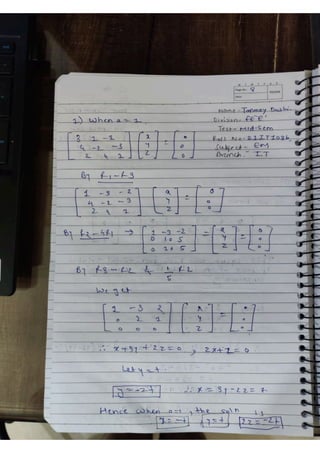 Page No. 8
Name - Tanmay Dushi
Division - FEE1
Test - Mid-Sem
Subject - EM
Branch - I.T
1) When a = 1,
[3 1 -1; 4 -2 -3; 2 4 1] [x; y; z] = [0; 0; 0]
By R1-R3
[1 -3 -2; 4 -2 -3; 2 4 1] [x; y; z] = [0; 0; 0]
By R2-4R1 → [1 -3 -2; 0 10 5; 0 10 5] = [x; y; z] = [0; 0; 0]
By R3-R2 & 1/5 R2
We get
[1 -3 2; 0 2 1; 0 0 0] [x; y; z] = [0; 0; 0]
∴ x+3y+2z=0 , 2x+z=0
Let y = t
y = -2t ∴ x = 3y-2z = t
Hence when a=1, the soln is
x=-t y=t z=-2t